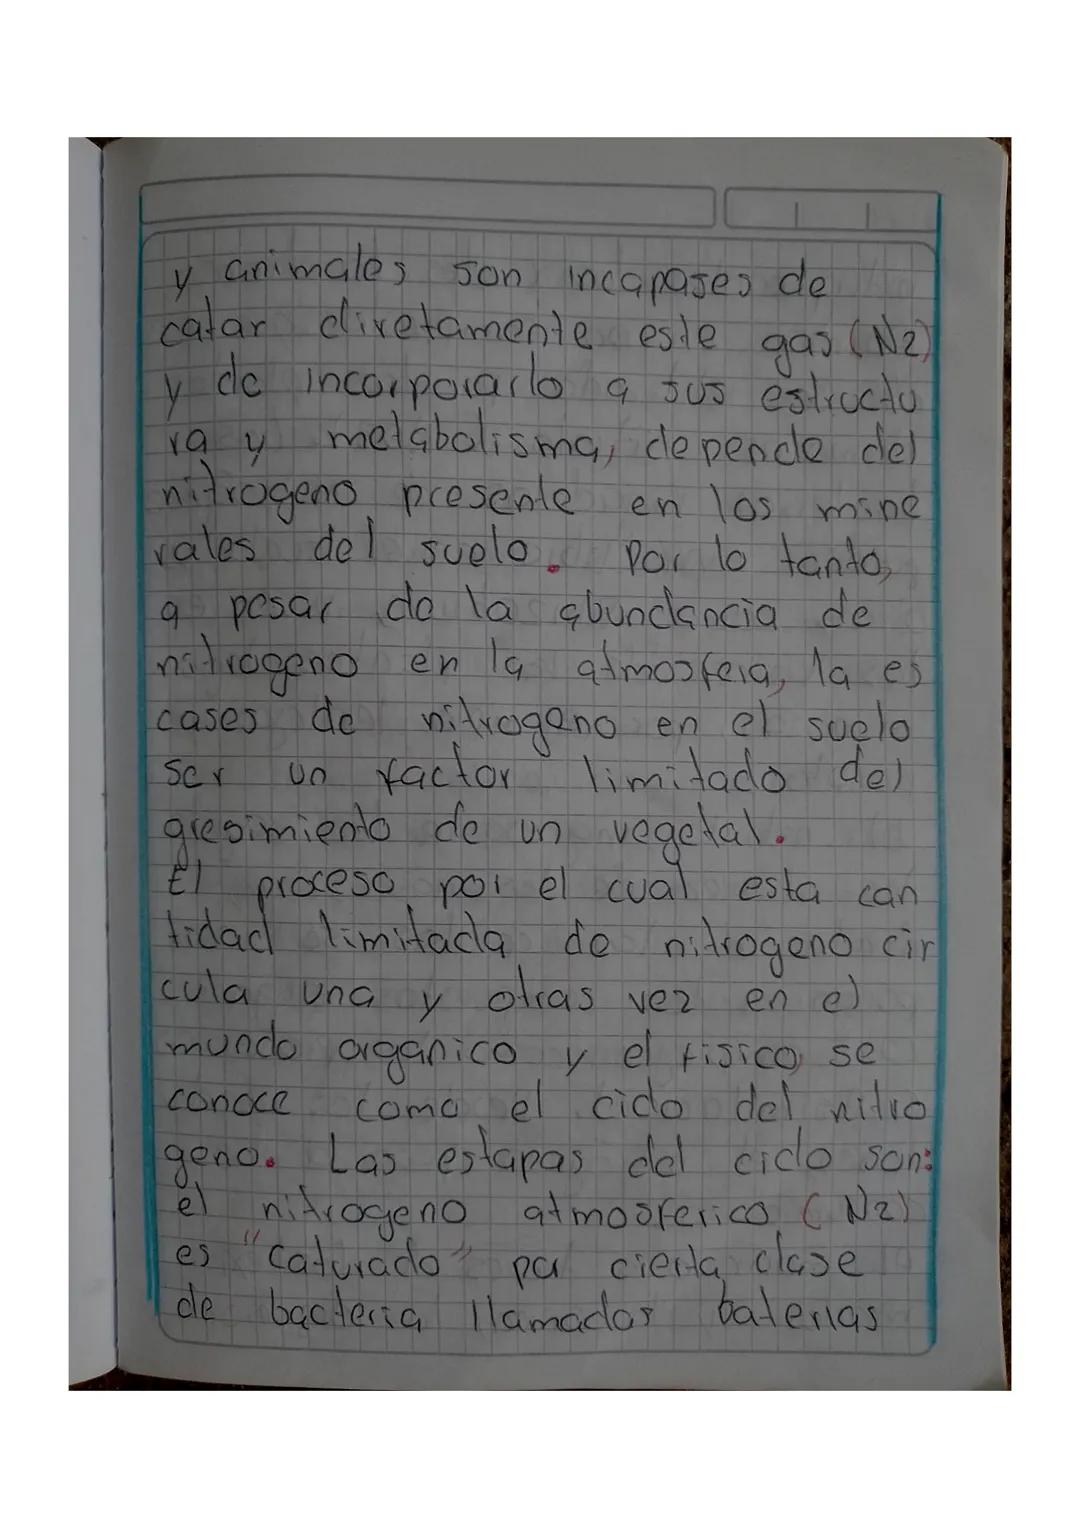 y animales son incapases de
catar diretamente este gas (N2)
y de incorporarlo a sus estructu
ra y metabolisma, depende del
nitrogeno presente en los mine
rales del suelo. Por lo tanto,
a pesar de la abundancia de
nitrogeno en la atmosfera, la es
cases de nitrogeno en el suelo
ser un factor limitado del
gresimiento de un vegetal.
El proceso por el cual esta can
tidad limitada de nitrogeno cir
cula una y otras vez en el
mundo organico y el fisico, se
conoce como el ciclo del nitro
geno. Las estapas del ciclo son:
el nitrogeno atmosferico (N2)
es "caturado" por cierta clase
de bacteria llamadas baterias